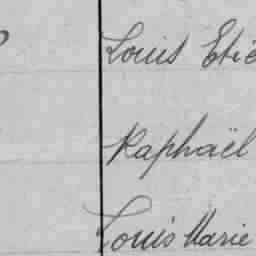 Louis Etie
Raphaël
Louis Marie